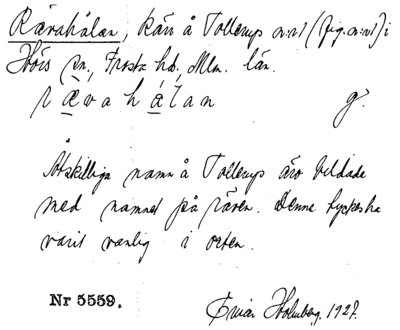 Rävahålan, kärr å Tollerups m:rl (fig. m:rl) i
Höörs sn, Frosta hd, Mlm. län.
rävahålan g.
Åtskilliga namn å Tollerups äro bildade
med namnet på räven. Denne tyckes ha
varit vanlig i orten.
Nr 5559. Holmberg. 1927.